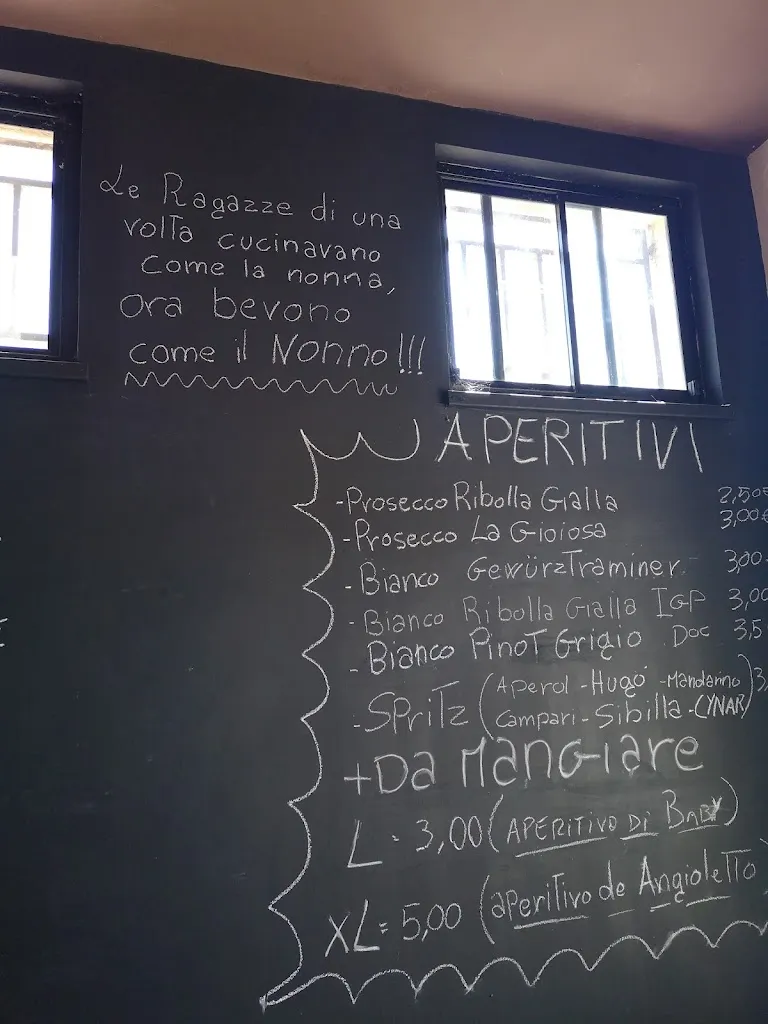 Le Ragazze di una
volta cucinavano
come la nonna,
ora bevono
come il Nonno!!!
APERITIVI
-Prosecco Ribolla Gialla 2,50€
-Prosecco La Gioiosa 3,00€
-Bianco GewürzTraminer 3,00
-Bianco Ribolla Gialla IGP 3,00
-Bianco PinoT Grigio DOC 3,5
-SPRITZ (Aperol -Hugo -Mandarino
Campari -Sibilla -CYNAR) 3,
+Da Mangiare
L = 3,00 (APERITIVO DI BABY)
XL = 5,00 (aperitivo de Angioletto)